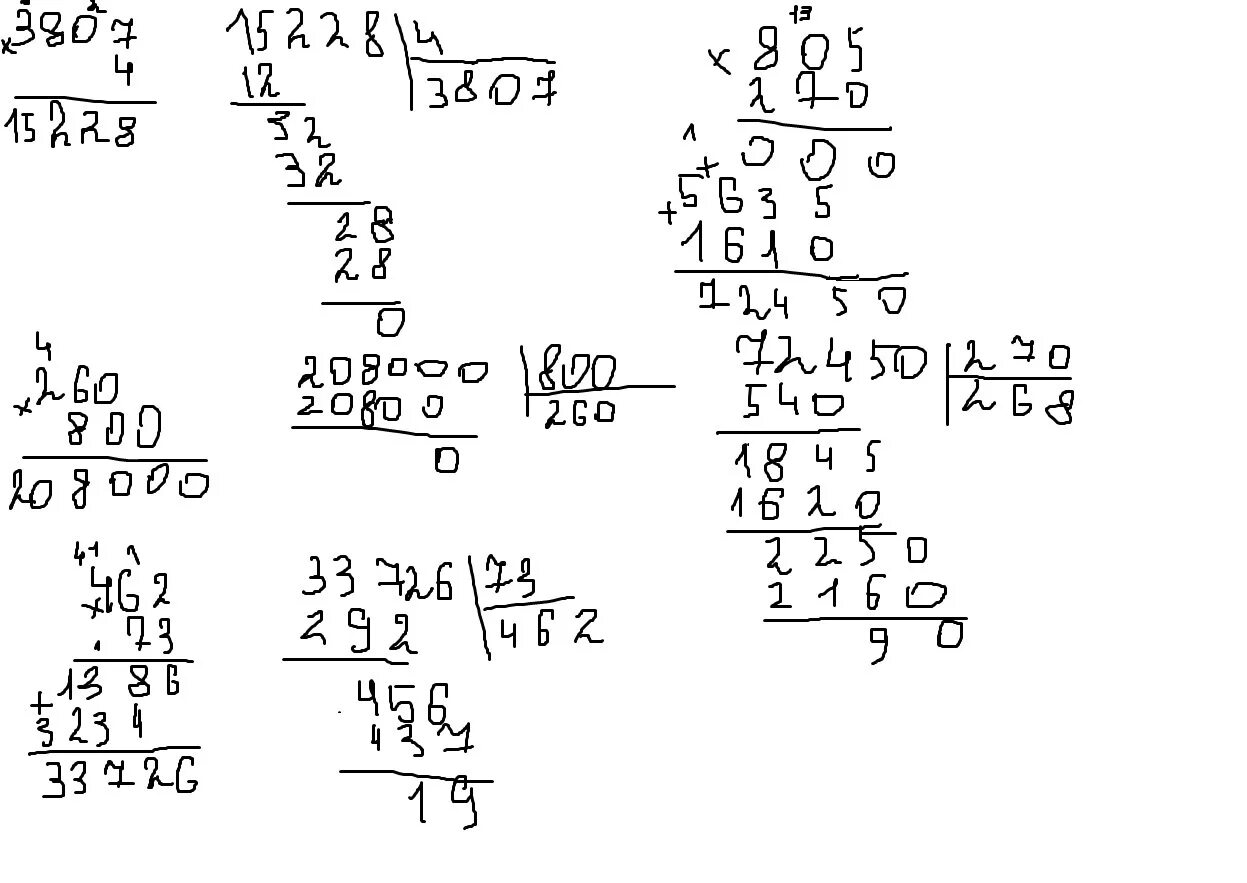 2 2
× 3807
4
15228
15228 | 4
12 3807
32
32
28
28
0
+3
× 805
270
1
+ 000
+ 5635
1610
72450
4
× 260
800
208000
208000 | 800
20800 260
0
72450 | 270
540 268
1845
1620
2250
2160
90
4 1 1
× 462
73
1386
+ 3234
33726
33726 | 73
292 462
456
437
19